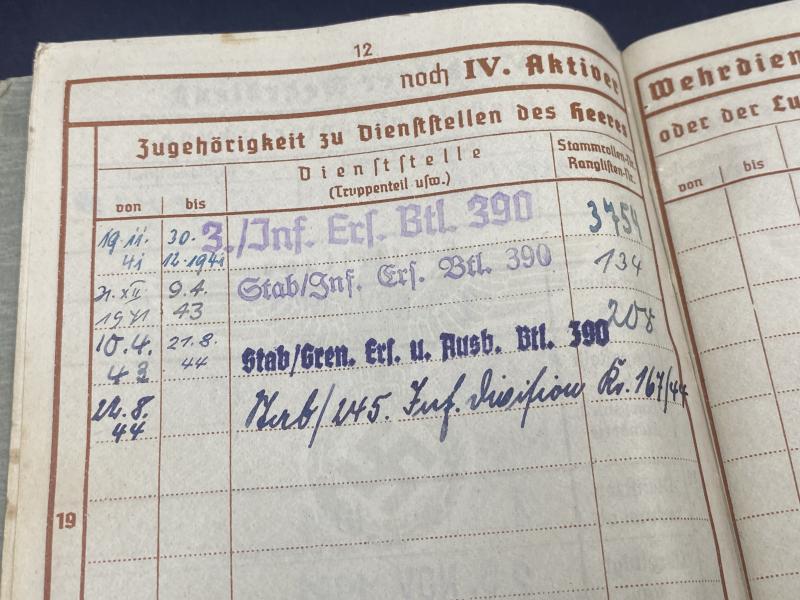 12
noch IV. Aktiver
Zugehörigkeit zu Dienststellen des Heeres
von bis
Dienststelle
(Truppenteil usw.)
Stammrollen-Nr.
Ranglisten-Nr.
19.11. 30. 3./Inf. Ers. Btl. 390 3754
41 12.1941
31.XII 9.4. Stab/Inf. Ers. Btl. 390 134
1941 43
10.4. 21.8. Stab/Gren. Ers. u. Ausb. Btl. 390 208
43 44
22.8. Stab/245. Inf. Division Kr. 167/44
44
19
Wehrdien
oder der Lu
von bis